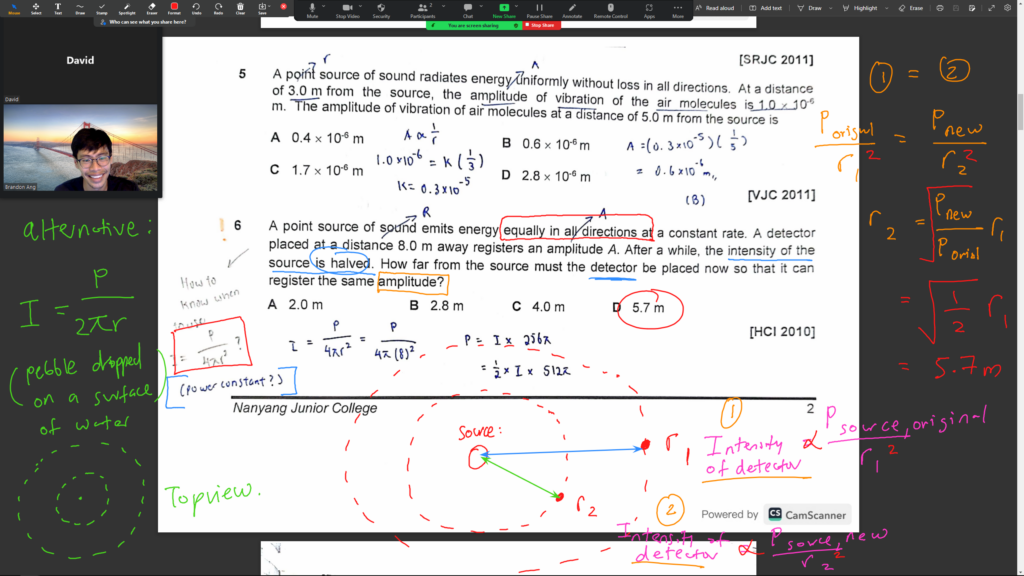 Mouse
Select
Text
Draw
Stamp
Spotlight
Eraser
Format
Undo
Redo
Clear
Save
Who can see what you share here?
Mute
Stop Video
Security
Participants
2
Chat
New Share
Pause Share
Annotate
Remote Control
Apps
More
You are screen sharing
Stop Share
Read aloud
Add text
Draw
Highlight
Erase
David
David
Brandon Ang
[SRJC 2011]
r
A
5 A point source of sound radiates energy uniformly without loss in all directions. At a distance
of 3.0 m from the source, the amplitude of vibration of the air molecules is 1.0 × 10⁻⁶
m. The amplitude of vibration of air molecules at a distance of 5.0 m from the source is
A 0.4 × 10⁻⁶ m
B 0.6 × 10⁻⁶ m
C 1.7 × 10⁻⁶ m
D 2.8 × 10⁻⁶ m
A ∝ 1/r
1.0×10⁻⁶ = K (1/3)
K = 0.3×10⁻⁵
A = (0.3×10⁻⁵) (1/5)
= 0.6×10⁻⁶ m,,
(B)
[VJC 2011]
R
A
! 6 A point source of sound emits energy equally in all directions at a constant rate. A detector
placed at a distance 8.0 m away registers an amplitude A. After a while, the intensity of the
source is halved. How far from the source must the detector be placed now so that it can
register the same amplitude?
A 2.0 m
B 2.8 m
C 4.0 m
D 5.7 m
[HCI 2010]
I = P/4πr² = P/4π(8)²
P = I × 256π
= 1/2 × I × 512π
How to
know when
= P/4πr² ?
(power constant?)
Nanyang Junior College
2
source:
r₁
r₂
①
Intensity
of detector ∝ P source, original / r₁²
②
Intensity of
detector ∝ P source, new / r₂²
Powered by CS CamScanner
alternative:
I = P/2πr
(pebble dropped
on a surface
of water)
Topview.
① = ②
P original / r₁² = P new / r₂²
r₂ = √(P new / P original) r₁
= √(1/2) r₁
= 5.7 m